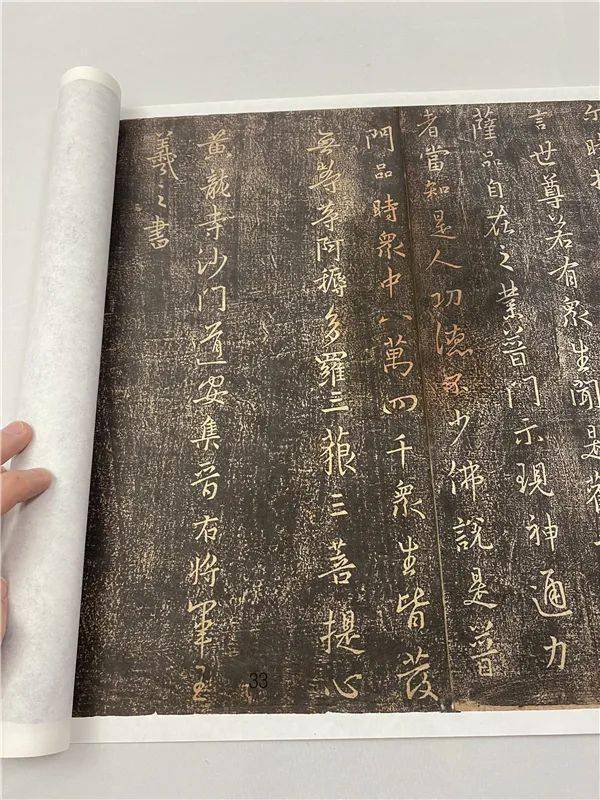 尔時
言世尊若有衆生聞是觀
薩品自在之業普門示現神通力
者當知是人功德不少佛說是普
門品時衆中八萬四千衆生皆發
無等等阿耨多羅三藐三菩提心
黃龍寺沙門道安集晉右將軍王
羲之書
33